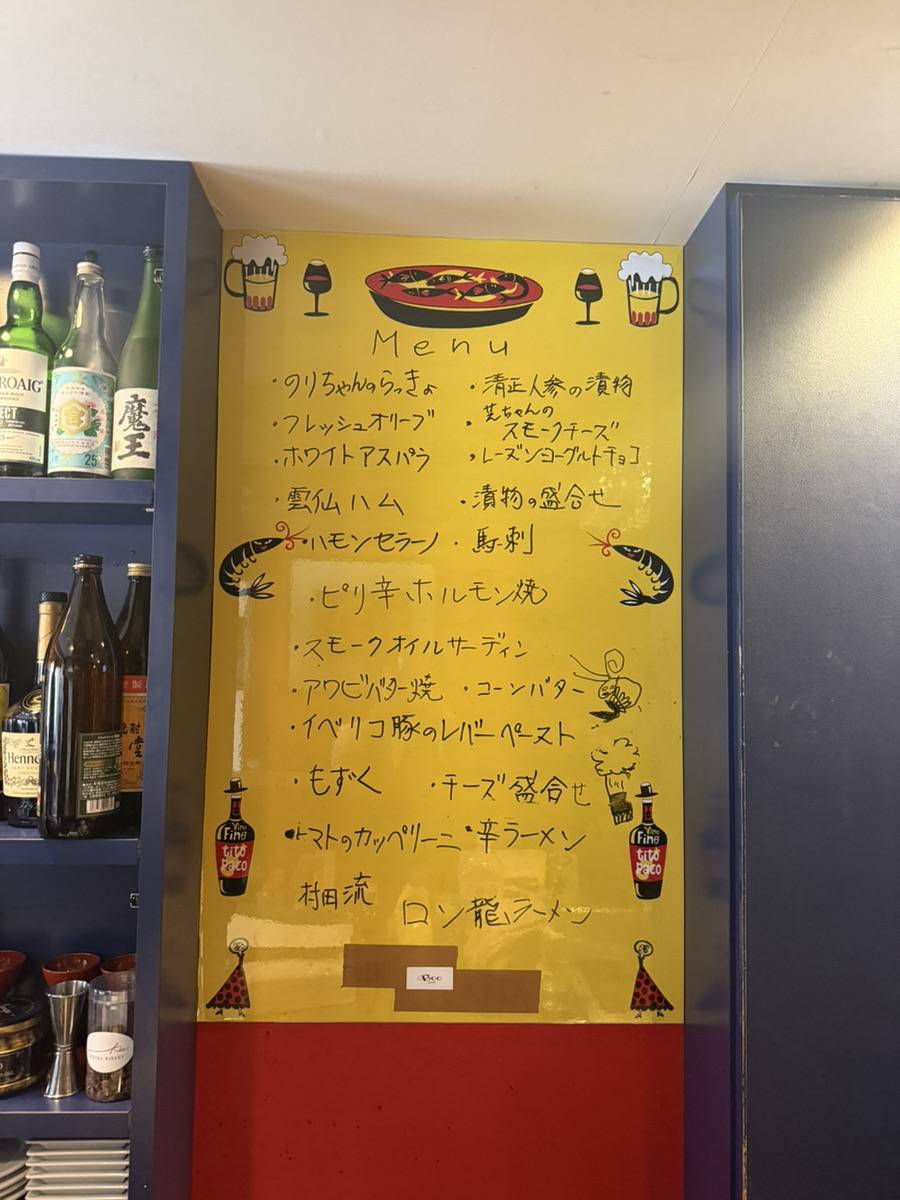 Menu
・のりちゃんのらっきょ ・清正人参の漬物
・フレッシュオリーブ ・芝ちゃんの
スモークチーズ
・ホワイトアスパラ ・レーズンヨーグルトチョコ
・雲仙ハム ・漬物の盛合せ
・ハモンセラーノ ・馬刺
・ピリ辛ホルモン焼
・スモークオイルサーディン
・アワビバター焼 ・コーンバター
・イベリコ豚のレバーペースト
・もずく ・チーズ盛合せ
・トマトのカッペリーニ ・辛ラーメン
村田流 ロン龍ラーメン
Vino
Fino
tito
Paco
Vino
Fino
tito
Paco
ROAIG
ECT
宮
25
魔王
Henne